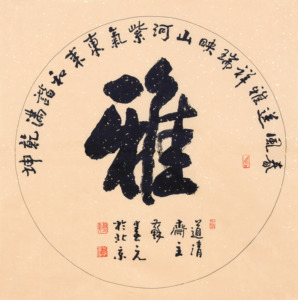 春風送雅祥瑞映山河紫氣東來和諧滿乾坤
雅
道清
齋主
蘇
元
於北京